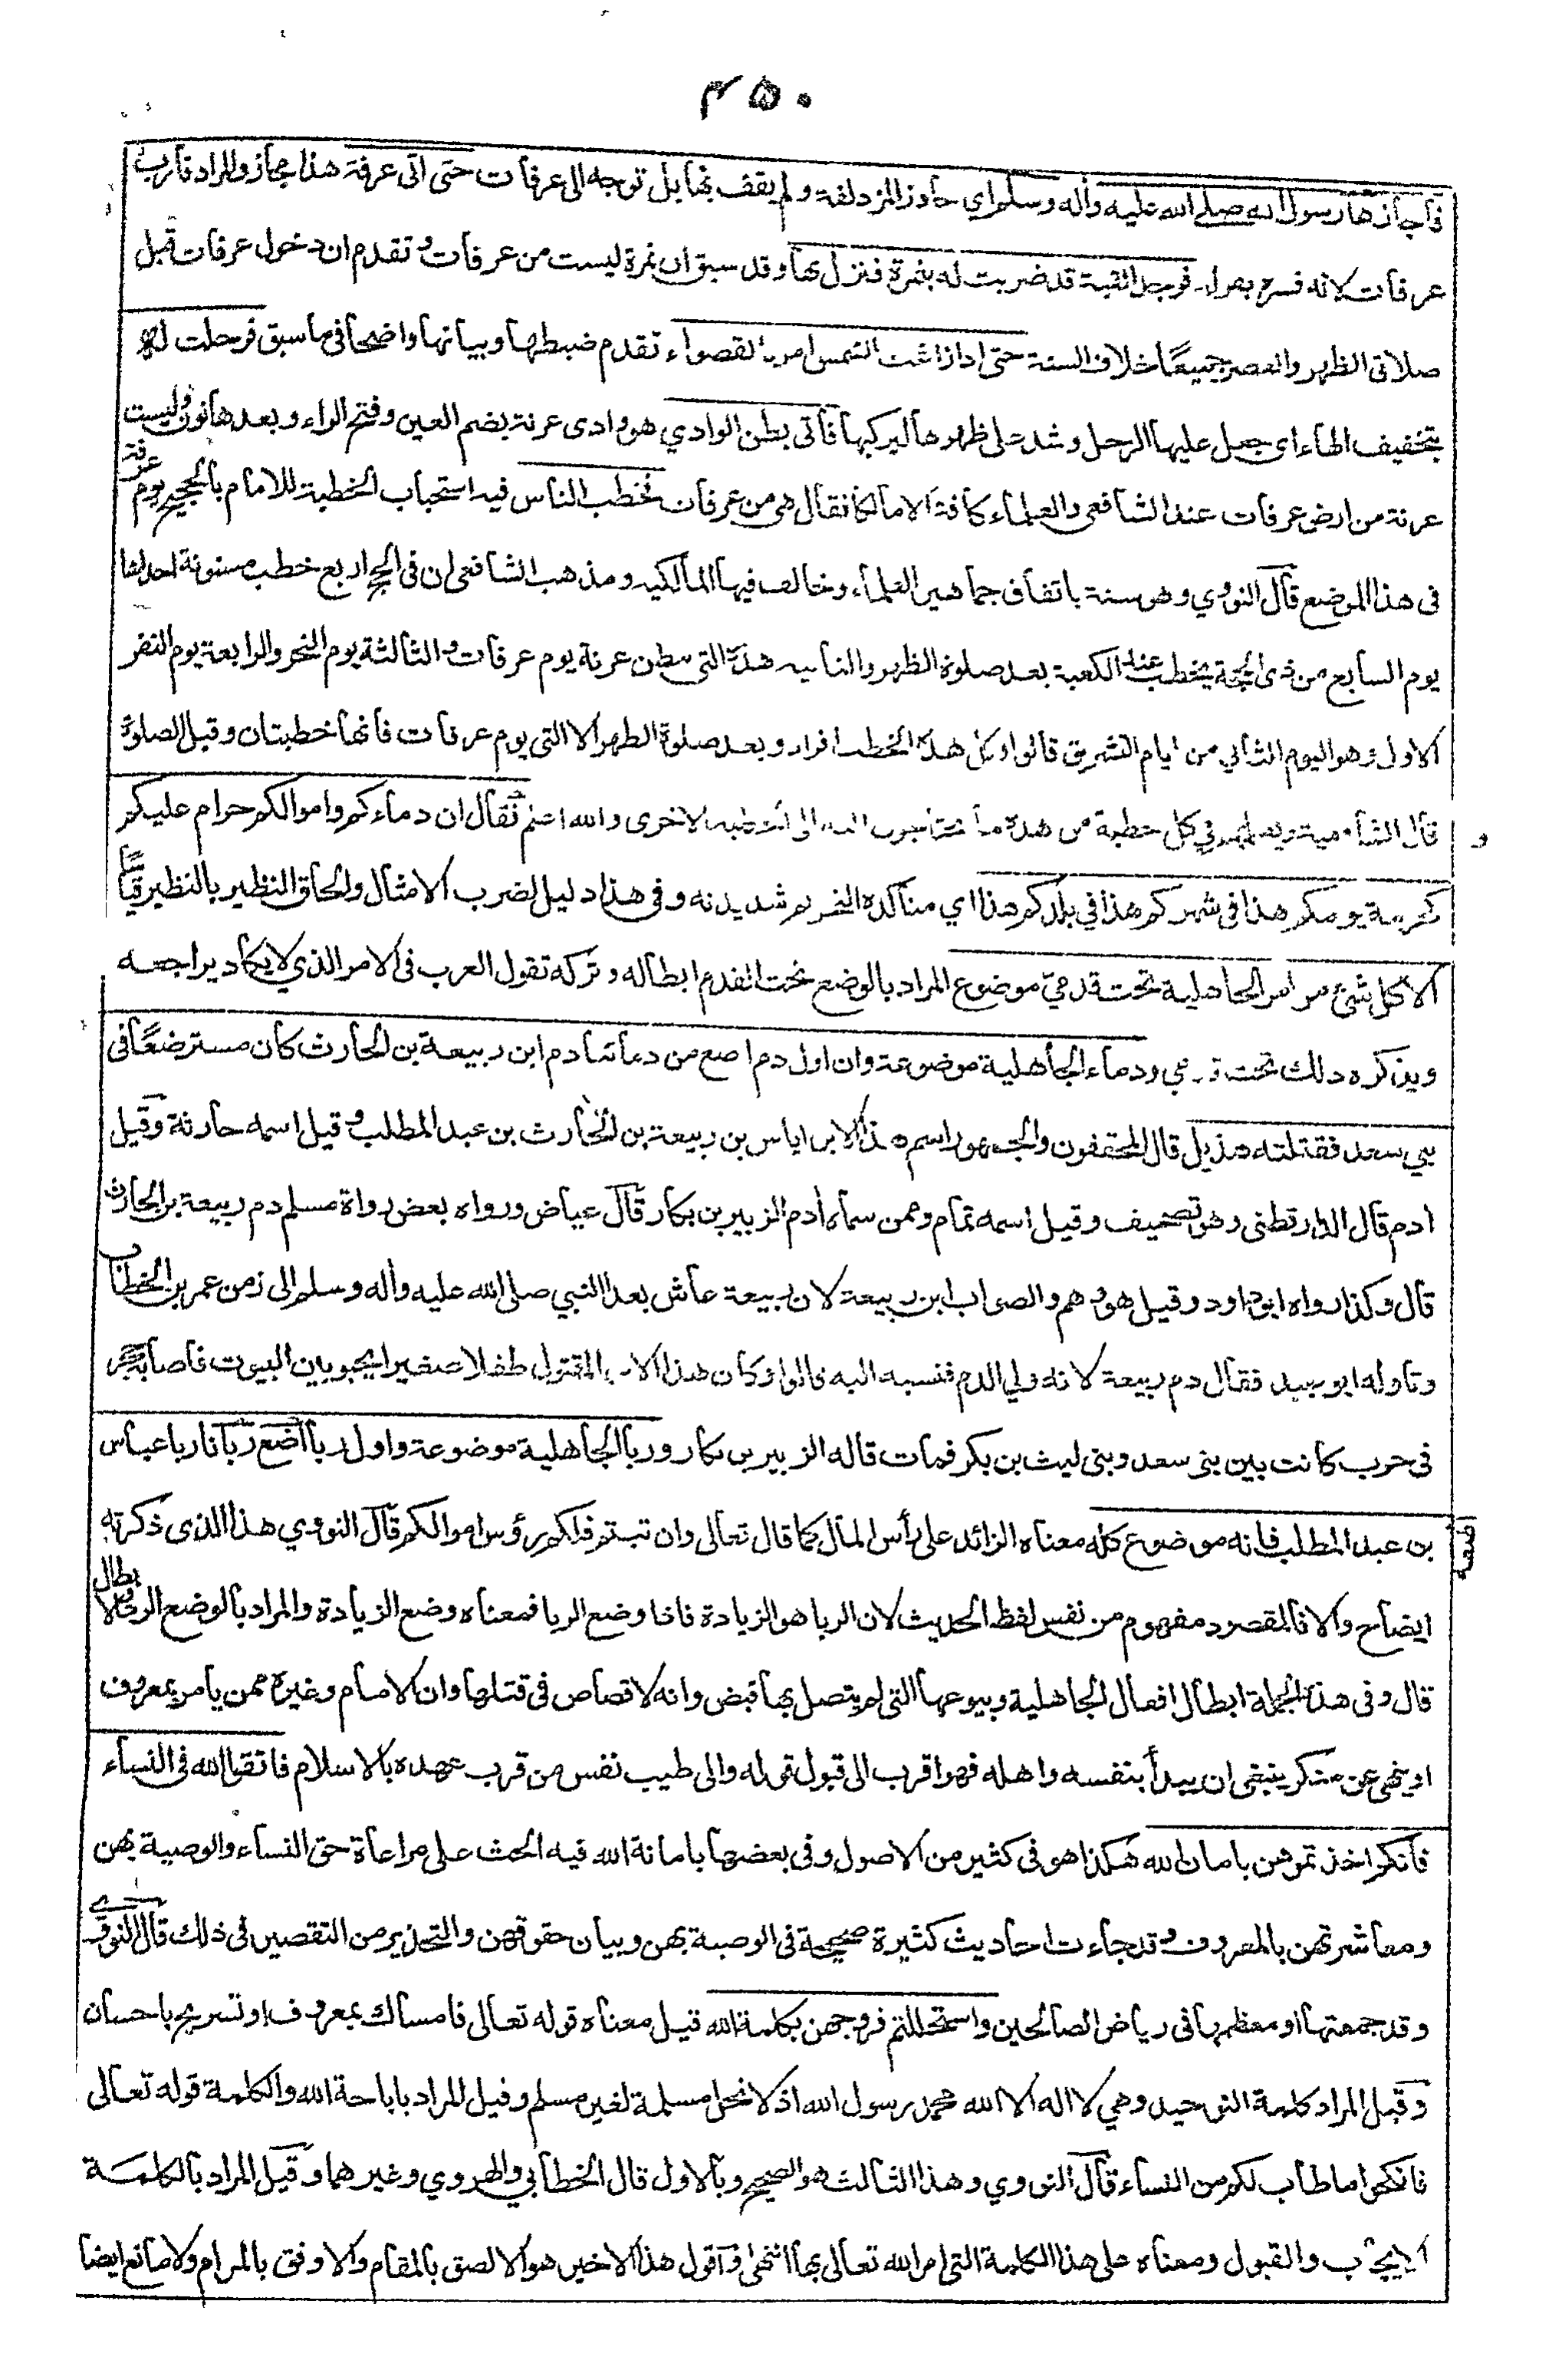 ٣٥٠
فأجازها رسول الله صلى الله عليه وأله وسلم اي جاوز المزدلفة ولم يقف بها بل توجه الى عرفات حتى اتى عرفة هذا مجاز والمراد قارب
عرفات لانه فسره بقوله فوجد القبة قد ضربت له بنمرة فنزل بها وقد سبق ان نمرة ليست من عرفات وتقدم ان دخول عرفات قبل
صلاتي الظهر والعصر جميعًا خلاف السنة حتى اذا زاغت الشمس امر بالقصواء تقدم ضبطها وبيانها واضحا في ما سبق فرحلت له
بتخفيف الهاء اي جعل عليها الرحل وشدت على ظهرها ليركبها فأتى بطن الوادي هو وادى عرنة بضم العين وفتح الراء وبعدها نون وليست
عرنة من ارض عرفات عند الشافعى والعلماء كافة الا مالكا فقال هى من عرفات فخطب الناس فيه استحباب الخطبة للامام بالحجيج يوم عرفة
فى هذا الموضع قال النووي وهو سنة باتفاق جماهير العلماء وخالف فيها المالكيه ومذهب الشافعى ان فى الحج اربع خطب مسنونة احدلها
يوم السابع من ذى الحجة يخطب عند الكعبة بعد صلوة الظهر والثانيه هذه التى ببطن عرنة يوم عرفات والثالثة يوم النحر والرابعة يوم النفر
الاول وهو اليوم الثاني من ايام التشريق قالوا وكل هذه الخطب افراد وبعد صلوة الظهر الا التى يوم عرفات فانها خطبتان وقبل الصلوة
قال الشافعية ويعلمهم في كل خطبة من هذه ما يحتاجون اليه الى الخطبة الاخرى والله اعلم فقال ان دماءكم واموالكم حرام عليكم
كحرمة يومكم هذا فى شهركم هذا في بلدكم هذا اي متأكدة التحريم شديدته وفى هذا دليل لضرب الامثال والحاق النظير بالنظير قياسا
الا كل شئ من امر الجاهلية تحت قدميّ موضوع المراد بالوضع تحت القدم ابطاله وتركه تقول العرب فى الامر الذي لا يكاد يراجعه
ويذكره ذلك تحت قدمي ودماء الجاهلية موضوعة وان اول دم اضع من دمائنا دم ابن ربيعة بن الحارث كان مسترضعًا فى
بني سعد فقتلته هذيل قال المحققون والجمهور اسم هذا الابن اياس بن ربيعة بن الحارث بن عبد المطلب وقيل اسمه حارثة وقيل
ادم قال الدارقطنى وهو تصحيف وقيل اسمه تمام وممن سماه أدم الزبير بن بكار قال عياض ورواه بعض رواة مسلم دم ربيعة بن الحارث
قال وكذا رواه ابو داود وقيل هو وهم والصواب ابن ربيعة لان ربيعة عاش بعد النبي صلى الله عليه وأله وسلم الى زمن عمر بن الخطاب
وتأوله ابو عبيد فقال دم ربيعة لانه ولي الدم فنسبه اليه قالوا وكان هذا الابن المقتول طفلا صغيرا يحبو بين البيوت فأصابه حجر
فى حرب كانت بين بنى سعد وبنى ليث بن بكر فمات قاله الزبير بن بكار وربا الجاهلية موضوعة واول ربا أضع ربانا ربا عباس
بن عبد المطلب فانه موضوع كله معناه الزائد على رأس المال كما قال تعالى وان تبتم فلكم رؤس اموالكم قال النووي هذا الذى ذكرته
ايضاح والا فالمقصود مفهوم من نفس لفظ الحديث لان الربا هو الزيادة فاذا وضع الربا فمعناه وضع الزيادة والمراد بالوضع الرد والابطال
قال وفى هذه الجملة ابطال افعال الجاهلية وبيوعها التى لم يتصل بها قبض وانه لا قصاص فى قتلها وان الامام وغيره ممن يأمر بمعروف
او ينهى عن منكر ينبغى ان يبدأ بنفسه واهله فهو اقرب الى قبول قوله والى طيب نفس من قرب عهده بالاسلام فاتقوا الله فى النساء
فانكم اخذتموهن بامان الله هكذا هو فى كثير من الاصول وفى بعضها بامانة الله فيه الحث على مراعاة حق النساء والوصية بهن
ومعاشرتهن بالمعروف وقد جاءت احاديث كثيرة صحيحة فى الوصية بهن وبيان حقوقهن والتحذير من التقصير فى ذلك قال النووي
وقد جمعتها او معظمها فى رياض الصالحين واستحللتم فروجهن بكلمة الله قيل معناه قوله تعالى فامساك بمعروف او تسريح باحسان
وقيل المراد كلمة التوحيد وهي لا اله الا الله محمد رسول الله اذ لا تحل مسلمة لغير مسلم وقيل المراد باباحة الله والكلمة قوله تعالى
فانكحوا ما طاب لكم من النساء قال النووي وهذا الثالث هو الصحيح وبالاول قال الخطابي والهروي وغيرهما وقيل المراد بالكلمة
الايجاب والقبول ومعناه على هذا الكلمة التى امر الله تعالى بها انتهى واقول هذا الاخير هو الالصق بالمقام والاوفق بالمرام ولا مانع ايضا